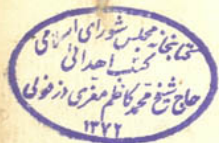 کتابخانه مجلس شورای اسلامی
کتب اهدائی
حاج شیخ محمد کاظم معزی دزفولی
۱۳۷۲